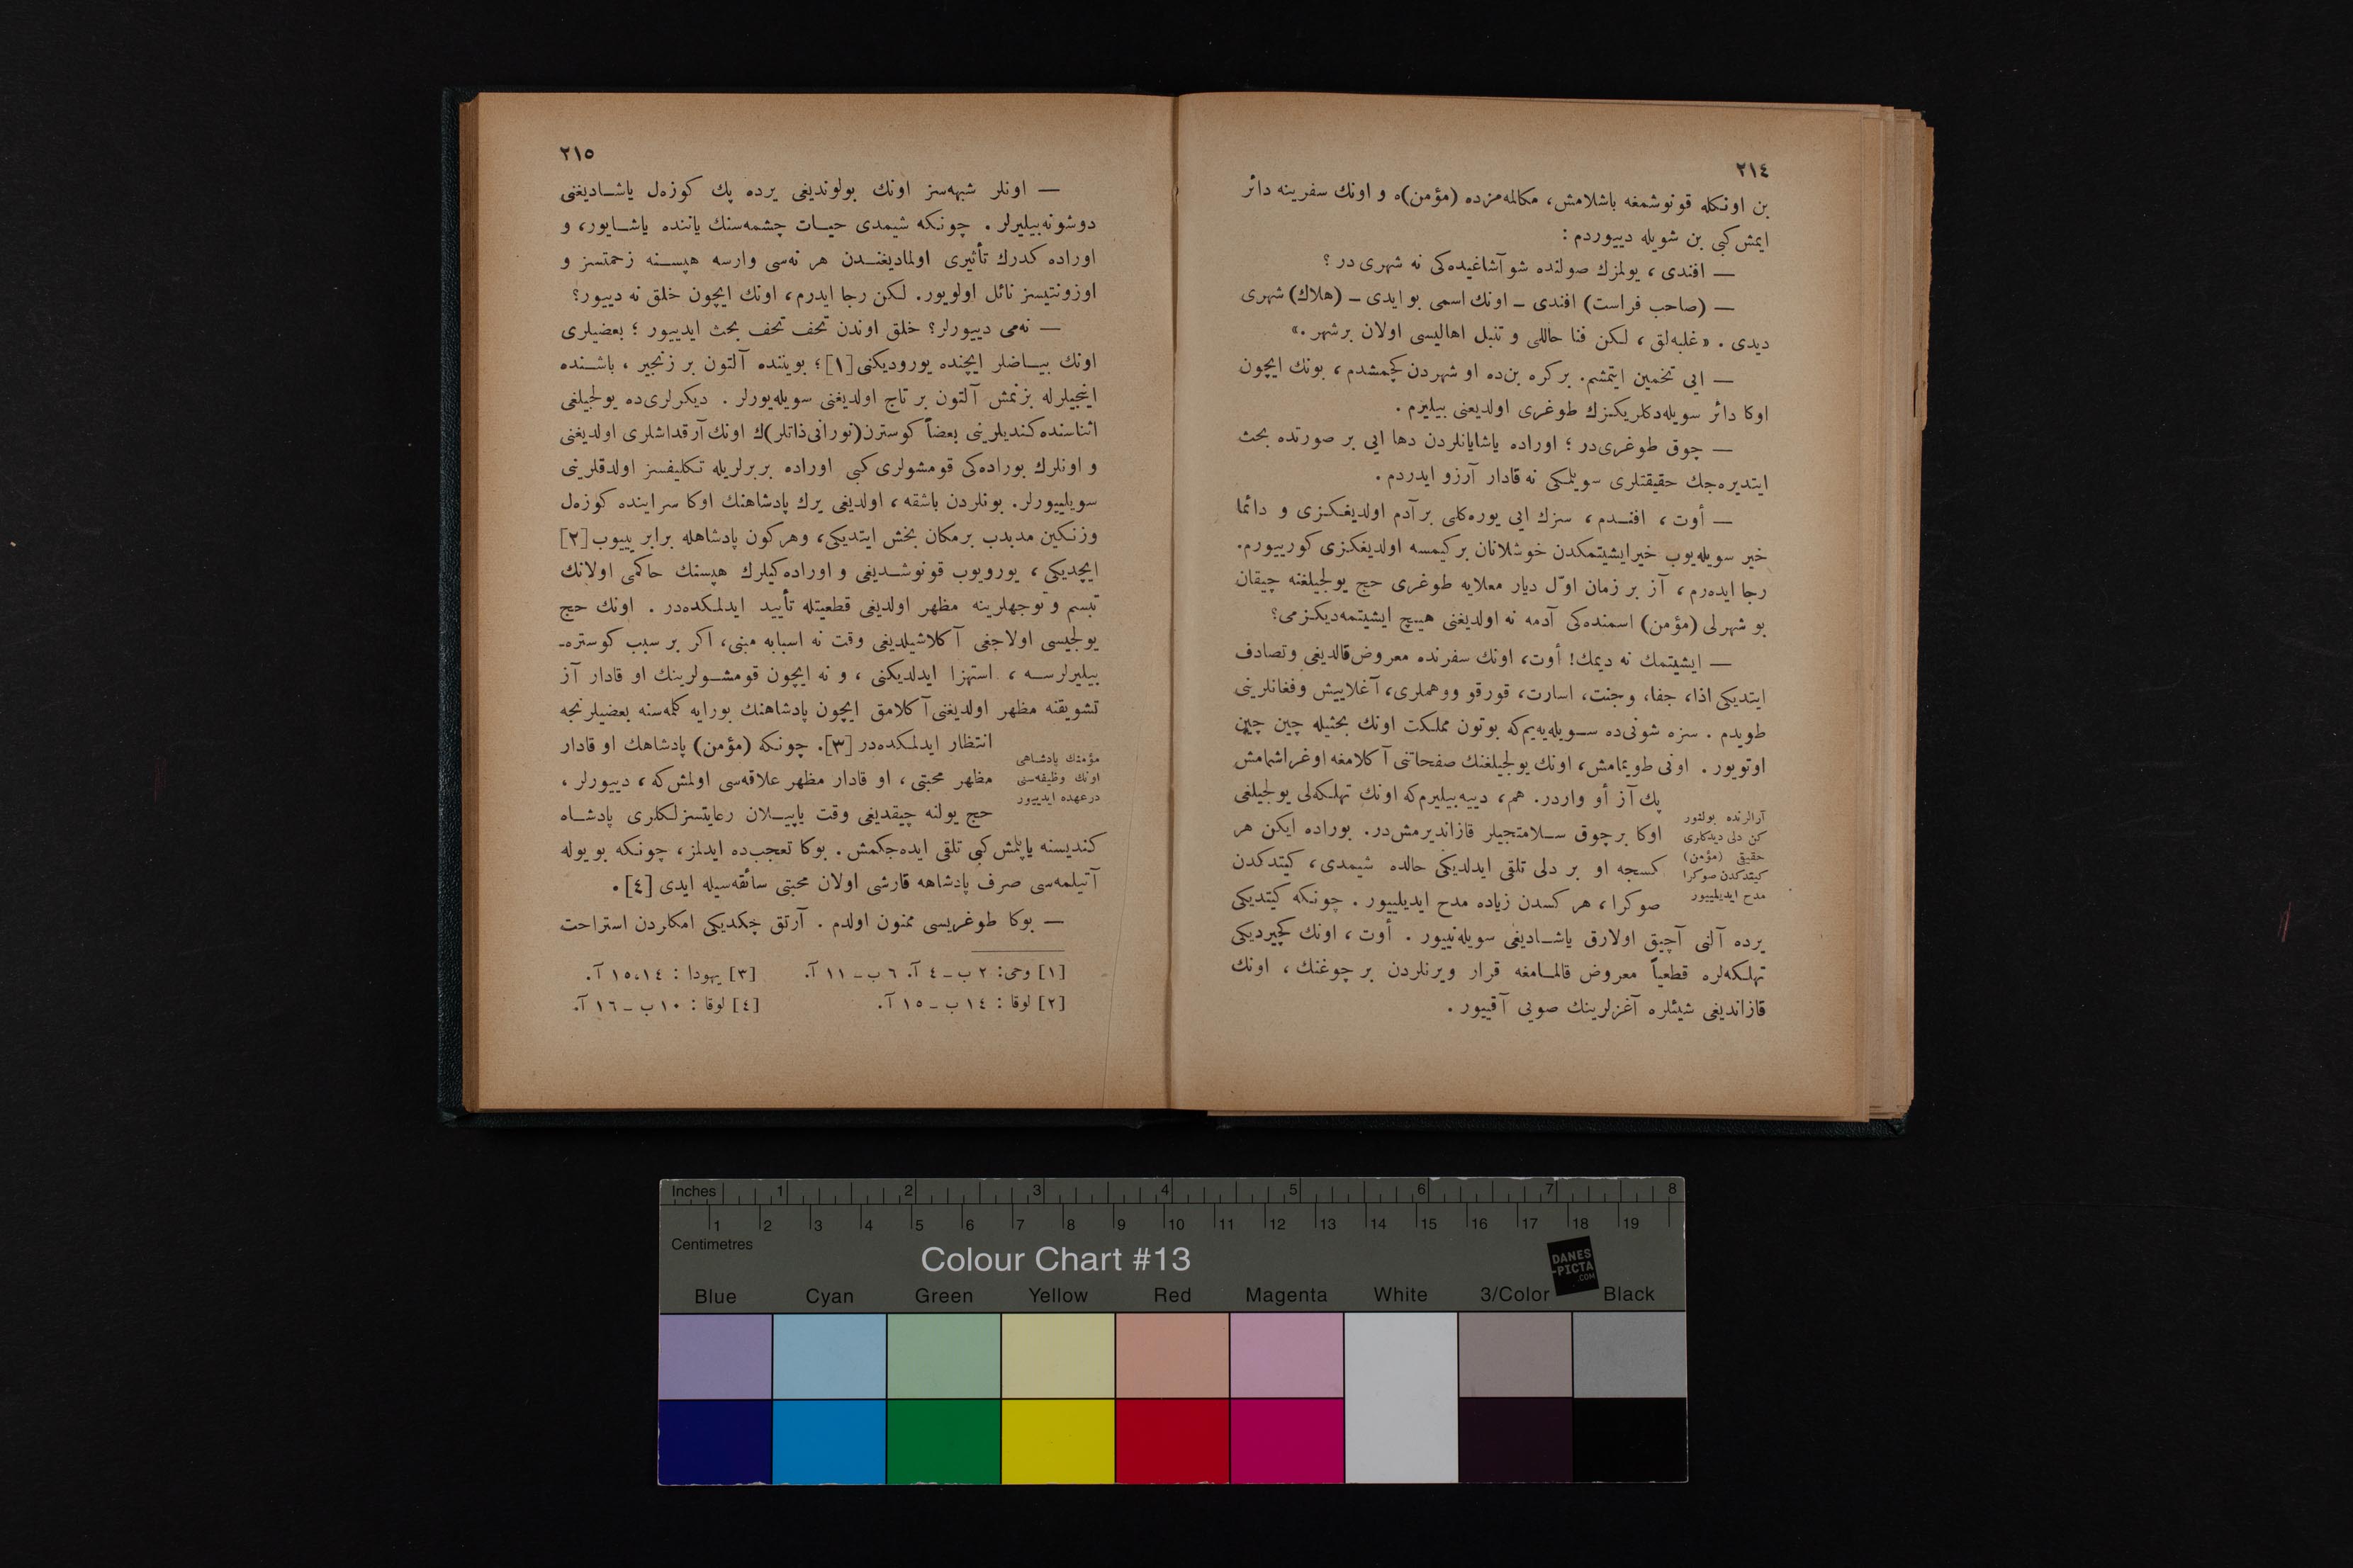 ٢١٤
بن اونكله قونوشمغه باشلامش، مكالمه‌مزده (مؤمن)ه و اونك سفرينه دائر
ايمش كبی بن شويله دييوردم :
— افندی ، يولمزك صولنده شو آشاغيده‌كی نه شهری در ؟
— (صاحب فراست) افندی ـ اونك اسمی بو ايدی ـ (هلاك) شهری
ديدی . «غلبه‌لق ، لكن فنا حاللی و تنبل اهاليسی اولان برشهر .»
— ايی تخمين ايتمشم. بركره بن‌ده او شهردن كچمشدم ، بونك ايچون
اوكا دائر سويله‌دكلريكزك طوغری اولديغنی بيليرم .
— چوق طوغری‌در ؛ اوراده ياشايانلردن دها ايی بر صورتده بحث
ايتديره‌جك حقيقتلری سويلمكی نه قادار آرزو ايدردم .
— أوت ، افندم ، سزك ايی يوره‌كلی برآدم اولديغكزی و دائما
خير سويله‌يوب خيرايشيتمكدن خوشلانان بركيمسه اولديغكزی كورييورم.
رجا ايده‌رم ، آز بر زمان اوّل ديار معلايه طوغری حج يولجيلغنه چيقان
بو شهرلی (مؤمن) اسمنده‌كی آدمه نه اولديغنی هيچ ايشيتمه‌ديكزمی؟
— ايشيتمك نه ديمك! أوت، اونك سفرنده معروض قالديغی وتصادف
ايتديكی اذا، جفا، وجنت، اسارت، قورقو ووهملری، آغلاييش وفغانلرينی
طويدم . سزه شونی‌ده سويله‌يه‌يم‌كه بوتون مملكت اونك بحثيله چين چين
اوتويور . اونی طويمامش، اونك يولجيلغنك صفحاتنی آكلامغه اوغراشمامش
پك آز أو واردر. هم، دييه‌بيليرم‌كه اونك تهلكه‌لی يولجيلغی
اوكا برچوق سلامتجيلر قازانديرمش‌در. بوراده ايكن هر
كسجه او بر دلی تلقی ايدلديكی حالده شيمدی ، كيتدكدن
صوكرا ، هر كسدن زياده مدح ايديلييور . چونكه كيتديكی
يرده آلنی آچيق اولارق ياشاديغی سويله‌نييور . أوت ، اونك كچيرديكی
تهلكه‌لره قطعياً معروض قالمامغه قرار ويرنلردن برچوغنك ، اونك
قازانديغی شيئلره آغزلرينك صويی آقييور .
آرالرنده بولنور
كن دلی ديدكلری
حقيقی (مؤمن)
كيتدكدن صوكرا
مدح ايديلييور
٢١٥
— اونلر شبهه‌سز اونك بولونديغی يرده پك كوزه‌ل ياشاديغنی
دوشونه‌بيليرلر . چونكه شيمدی حيات چشمه‌سنك ياننده ياشايور، و
اوراده كدرك تأثيری اولماديغندن هر نه‌سی وارسه هپسنه زحمتسز و
اوزونتيسز نائل اولويور. لكن رجا ايدرم، اونك ايچون خلق نه دييور؟
— نه‌می دييورلر؟ خلق اوندن تحف تحف بحث ايدييور ؛ بعضيلری
اونك بياضلر ايچنده يوروديكنی [١]؛ بويننده آلتون بر زنجير ، باشنده
اينجيلرله بزنمش آلتون بر تاج اولديغنی سويله‌يورلر . ديكرلری‌ده يولجيلغی
اثناسنده كنديلرينی بعضاً كوسترن(نورانی ذاتلر)ك اونك آرقداشلری اولديغنی
و اونلرك بوراده‌كی قومشولری كبی اوراده بربرلريله تكليفسز اولدقلرينی
سويلييورلر. بونلردن باشقه ، اولديغی يرك پادشاهنك اوكا سراينده كوزه‌ل
وزنكين مدبدب برمكان بخش ايتديكی، وهركون پادشاهله برابر ييوب [٢]
ايچديكی ، يورويوب قونوشديغی و اوراده‌كيلرك هپسنك حاكمی اولانك
تبسم و توجهلرينه مظهر اولديغی قطعيتله تأييد ايدلمكده‌در . اونك حج
يولجيسی اولاجغی آكلاشيلديغی وقت نه اسبابه مبنی، اكر بر سبب كوستره‌ـ
بيليرلرسه ، استهزا ايدلديكنی ، و نه ايچون قومشولرينك او قادار آز
تشويقنه مظهر اولديغنی آكلامق ايچون پادشاهنك بورايه كلمه‌سنه بعضيلرنجه
انتظار ايدلمكده‌در [٣]. چونكه (مؤمن) پادشاهك او قادار
مظهر محبتی ، او قادار مظهر علاقه‌سی اولمش‌كه ، دييورلر ،
حج يولنه چيقديغی وقت ياپيلان رعايتسزلكلری پادشاه
كنديسنه ياپلمش كبی تلقی ايده‌جكمش . بوكا تعجب‌ده ايدلمز، چونكه بو يوله
آتيلمه‌سی صرف پادشاهه قارشی اولان محبتی سائقه‌سيله ايدی [٤] .
— بوكا طوغريسی ممنون اولدم . آرتق چكديكی امكلردن استراحت
مؤمنك پادشاهی
اونك وظيفه‌سنی
درعهده ايدييور
[١] وحی: ٢ ب ـ ٤ آ. ٦ ب ـ ١١ آ.
[٢] لوقا : ١٤ ب ـ ١٥ آ.
[٣] يهودا : ١٥،١٤ آ.
[٤] لوقا : ١٠ ب ـ ١٦ آ.
Inches 1 2 3 4 5 6 7 8
1 2 3 4 5 6 7 8 9 10 11 12 13 14 15 16 17 18 19
Centimetres
Colour Chart #13
DANES
-PICTA
.COM
Blue Cyan Green Yellow Red Magenta White 3/Color Black